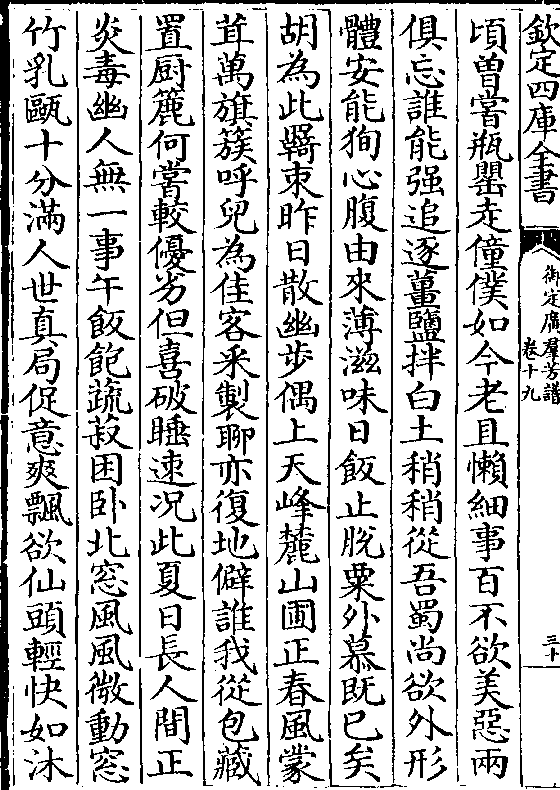 欽定四庫全書
御定廣羣芳譜
卷十九
三十
頃曽嘗瓶罌走僮僕如今老且懶細事百不欲美惡兩
俱忘誰能强追逐薑鹽拌白土稍稍從吾蜀尚欲外形
體安能狥心腹由來薄滋味日飯止脱粟外慕既已矣
胡為此羇束昨日散幽步偶上天峰麓山圃正春風蒙
茸萬旗簇呼兒為佳客采製聊亦復地僻誰我從包藏
置厨簏何嘗較優劣但喜破睡速况此夏日長人間正
炎毒幽人無一事午飯飽蔬菽困卧北窓風風微動窓
竹乳甌十分滿人世真局促意爽飄欲仙頭輕快如沐